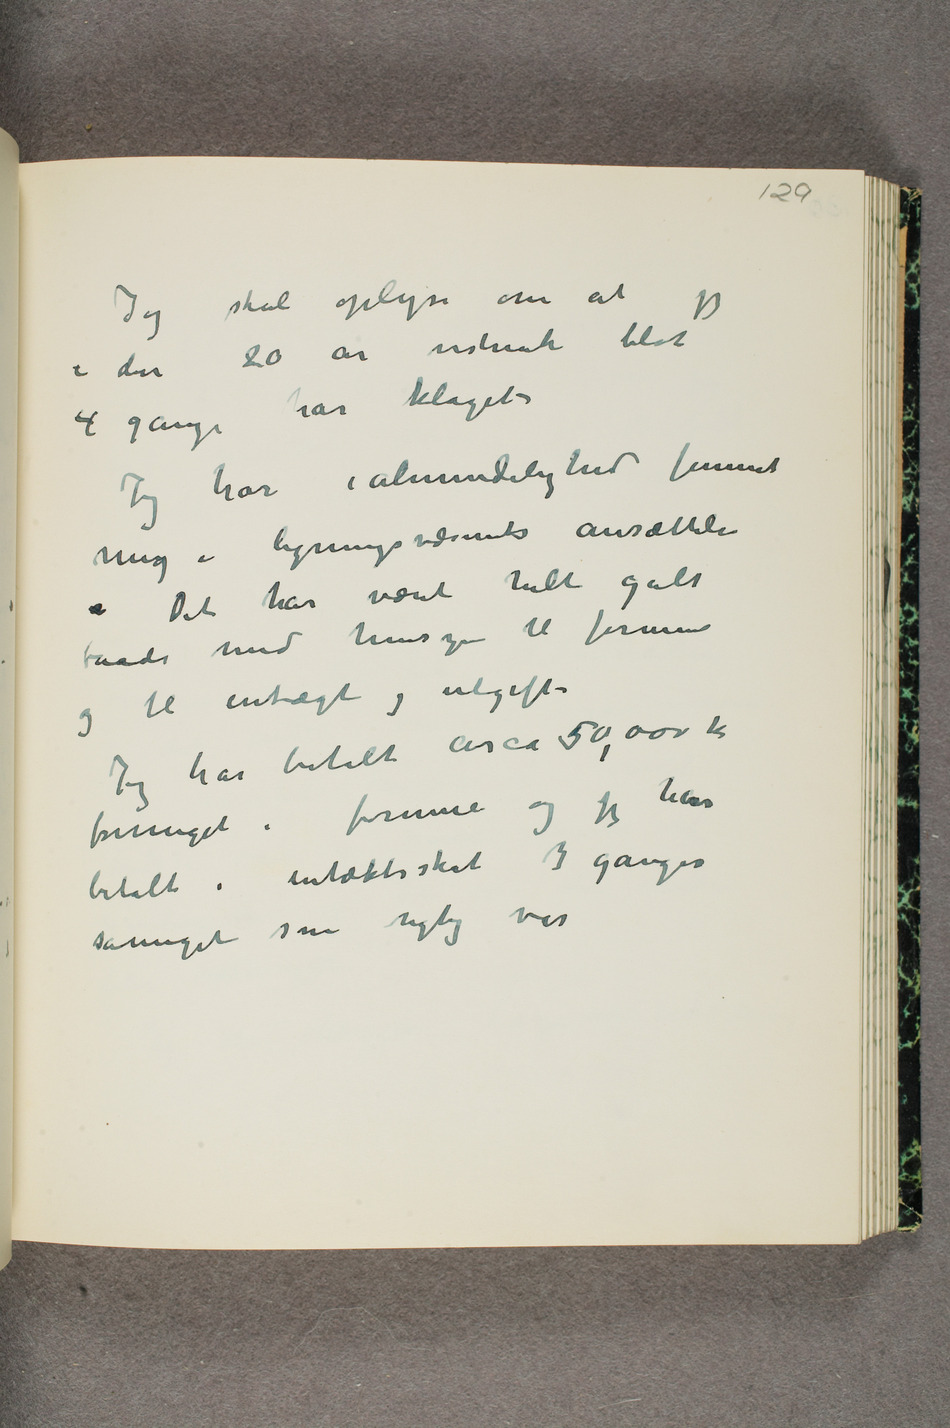 129
Jeg skal oplyse om at jeg
i der 20 år blot
4 gange har klaget –
Jeg har i almindelighed funnet
mig i ligningsvæsnets ansættelse
Det har været helt galt
baade med hensyn til formue
og til entægt og utgift –
Jeg har betalt circa 50,000 kr
formeget i formue og jeg har
betalt i entæktsskat 3 ganger
såmeget som rigtig var